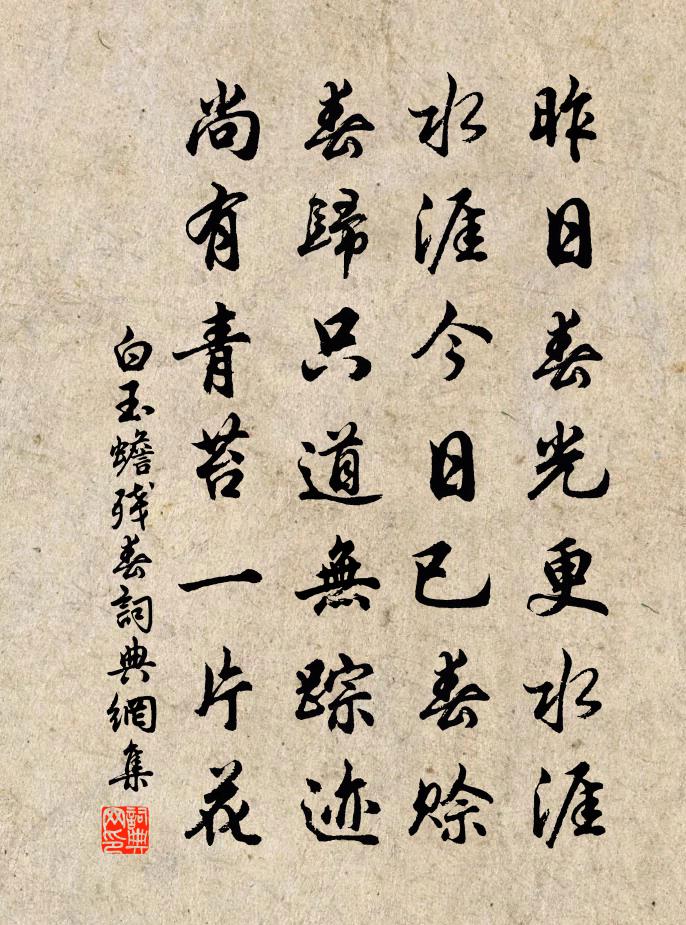 昨日春光更水涯
水涯今日已春赊
春歸只道無踪迹
尚有青苔一片花
白玉蟾残春詞典網集
詞典网印